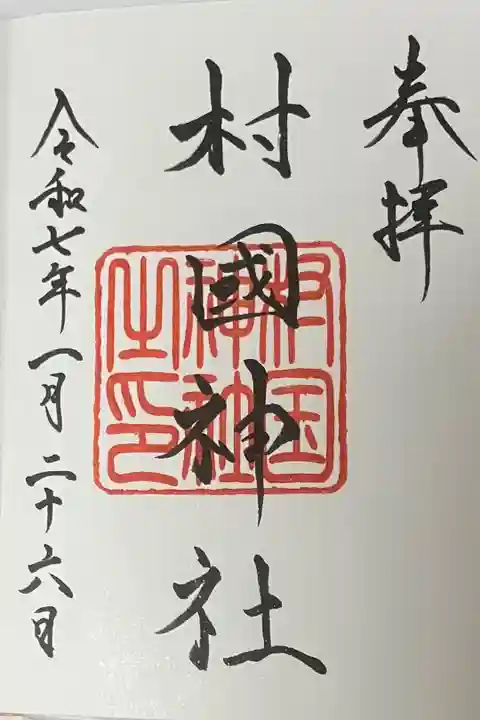 奉拝
村國神社
村国
神社
之印
令和七年一月二十六日